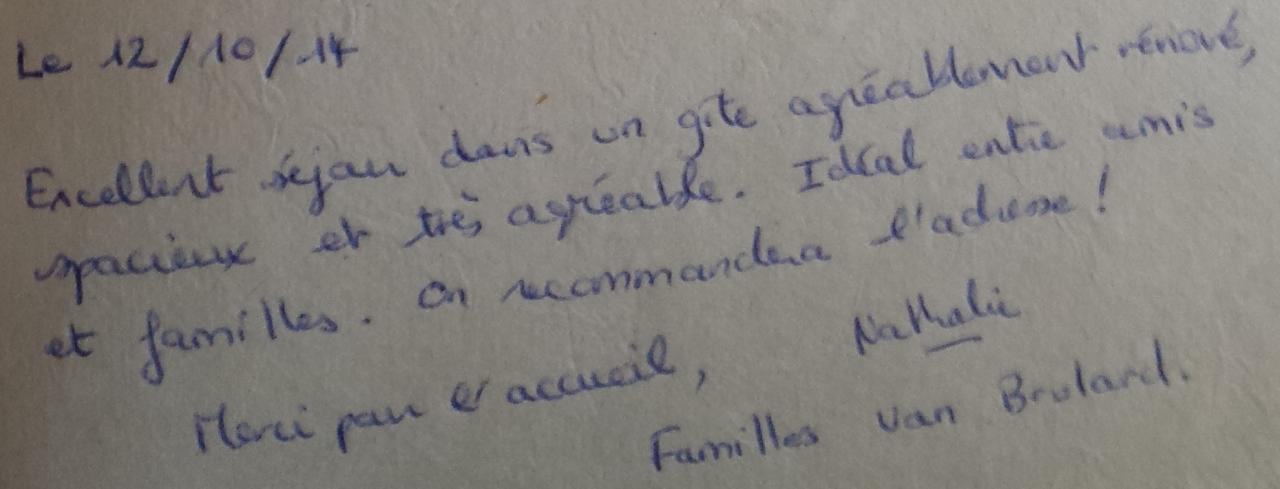 Le 12/10/14
Excellent séjour dans un gîte agréablement rénové,
spacieux et très agréable. Idéal entre amis
et familles. On recommandera l'adresse !
Merci pour l'accueil, Nathalie
Familles van Brulard.